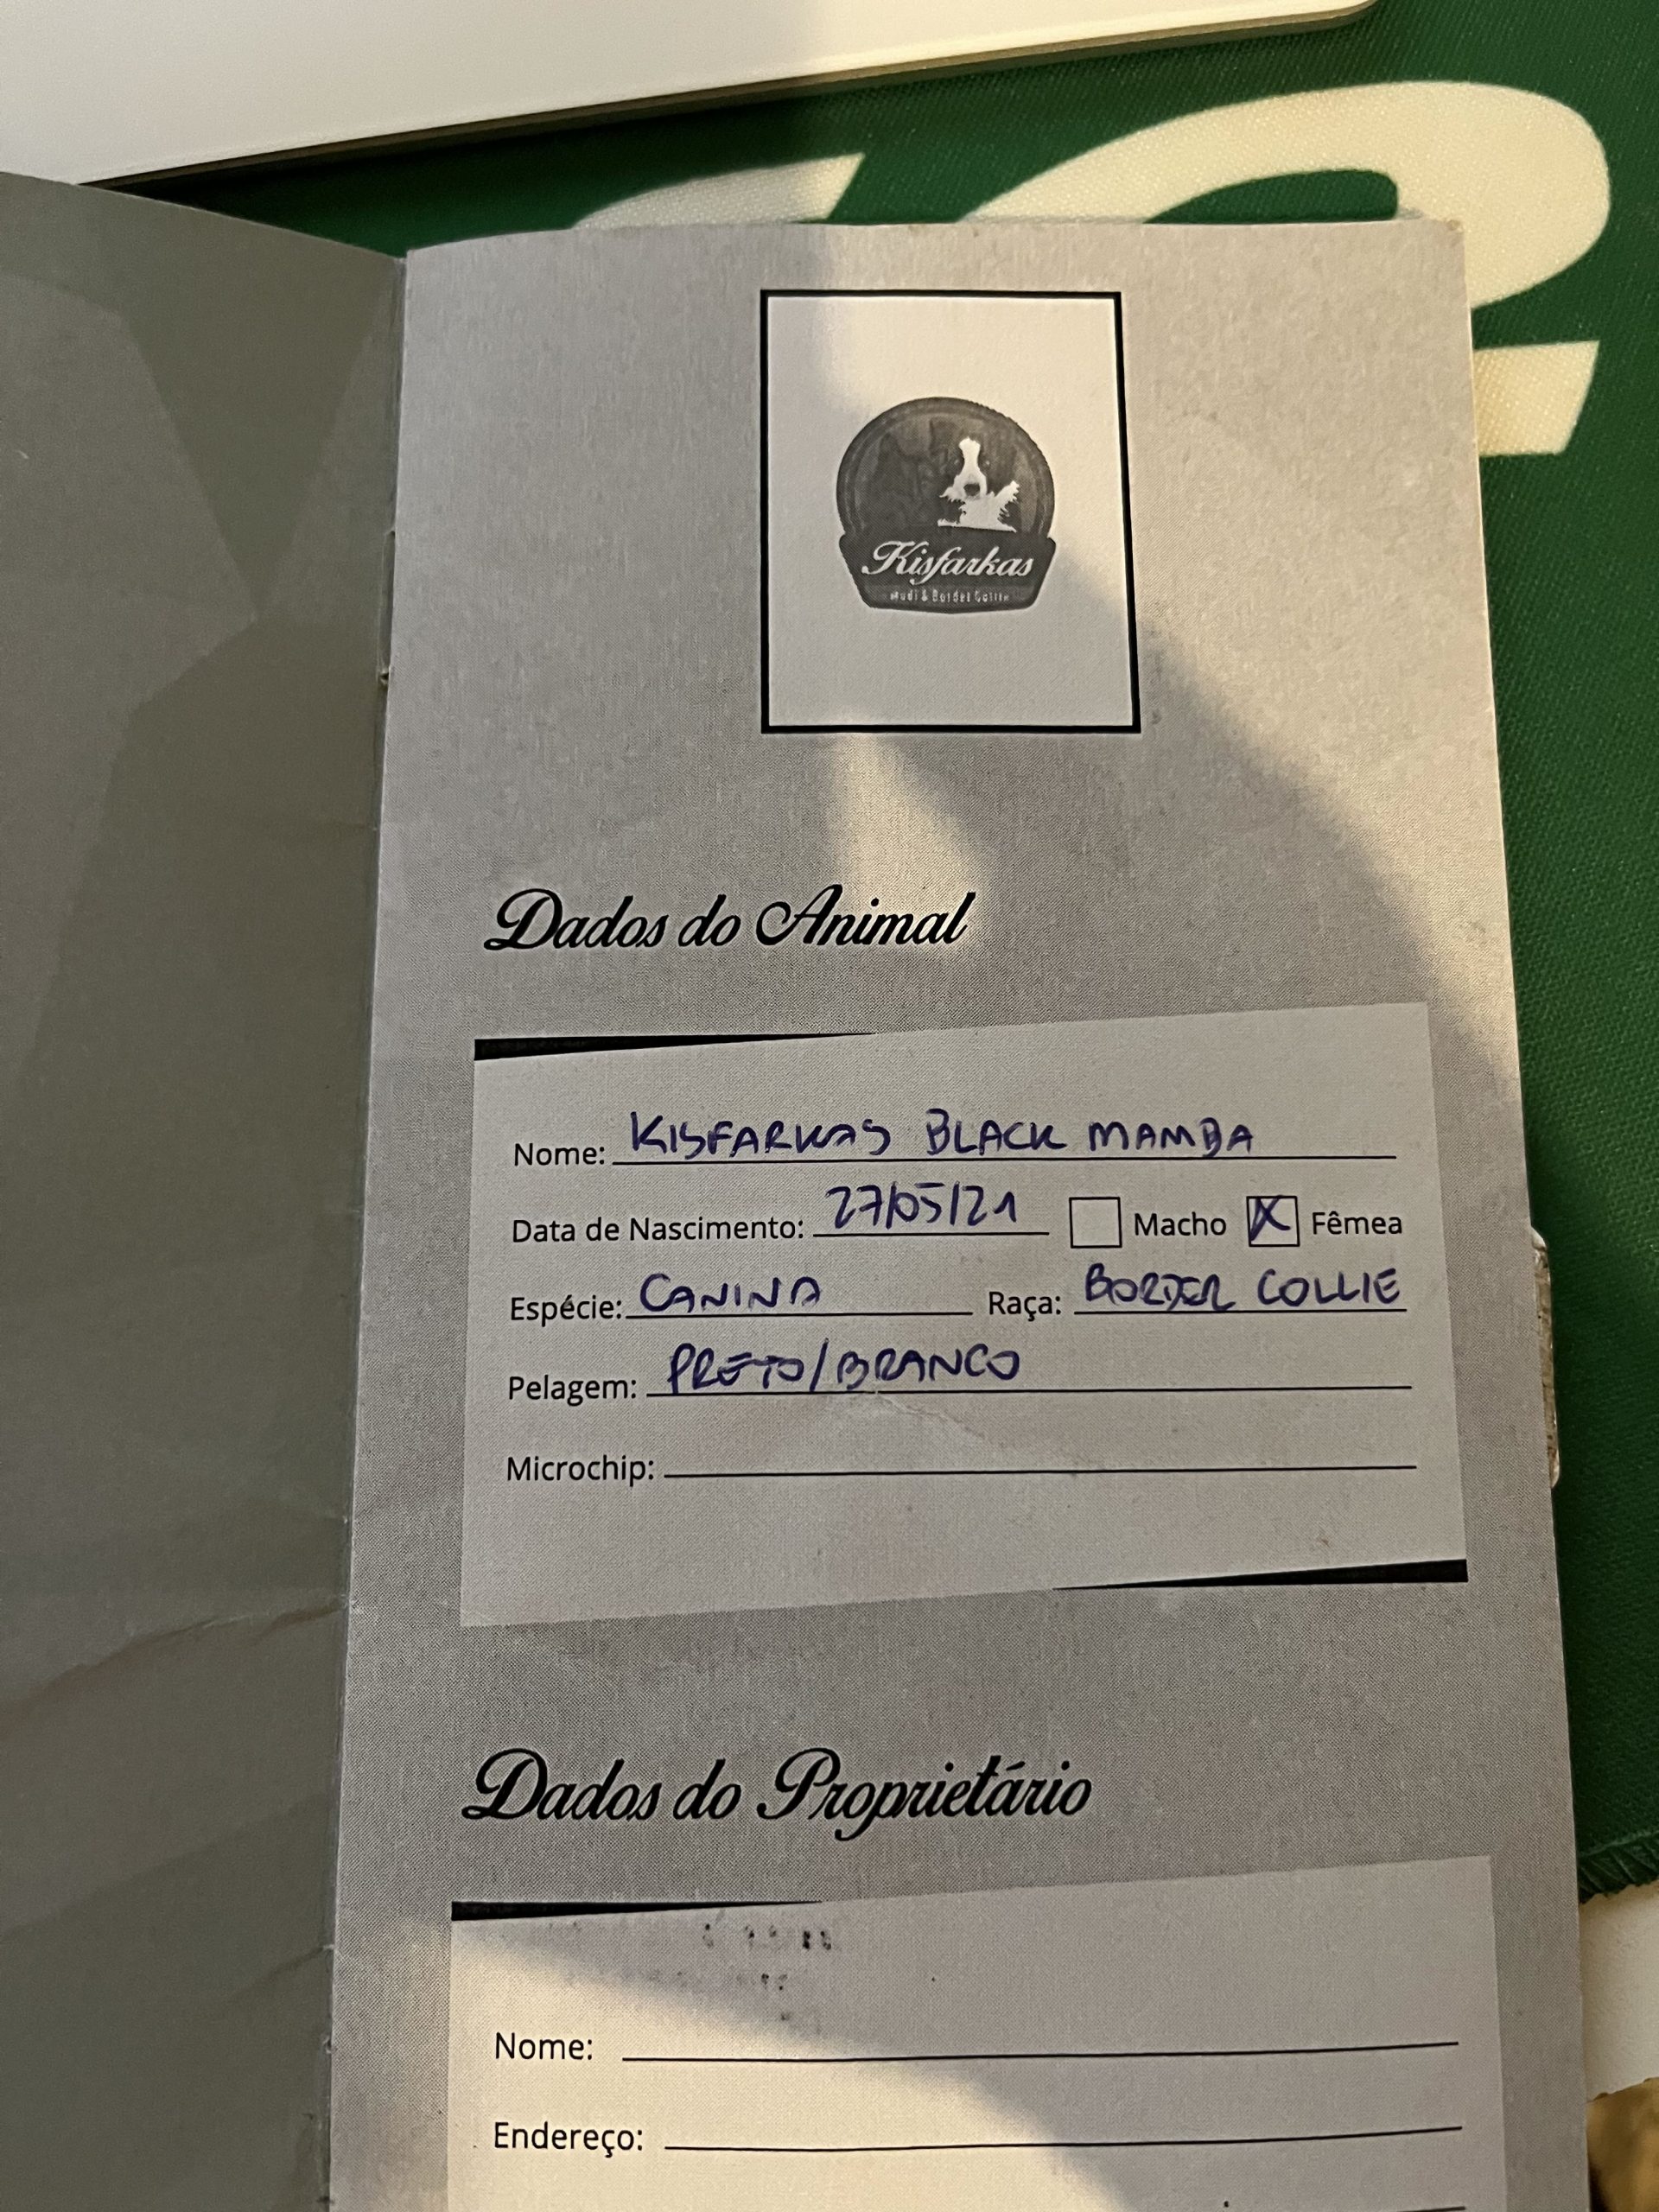 Kisfarkas
Mudi & Border Collie
Dados do Animal
Nome: KISFARKAS BLACK MAMBA
Data de Nascimento: 27/05/21 Macho X Fêmea
Espécie: CANINA Raça: BORDER COLLIE
Pelagem: PRETO/BRANCO
Microchip:
Dados do Proprietário
Nome:
Endereço: